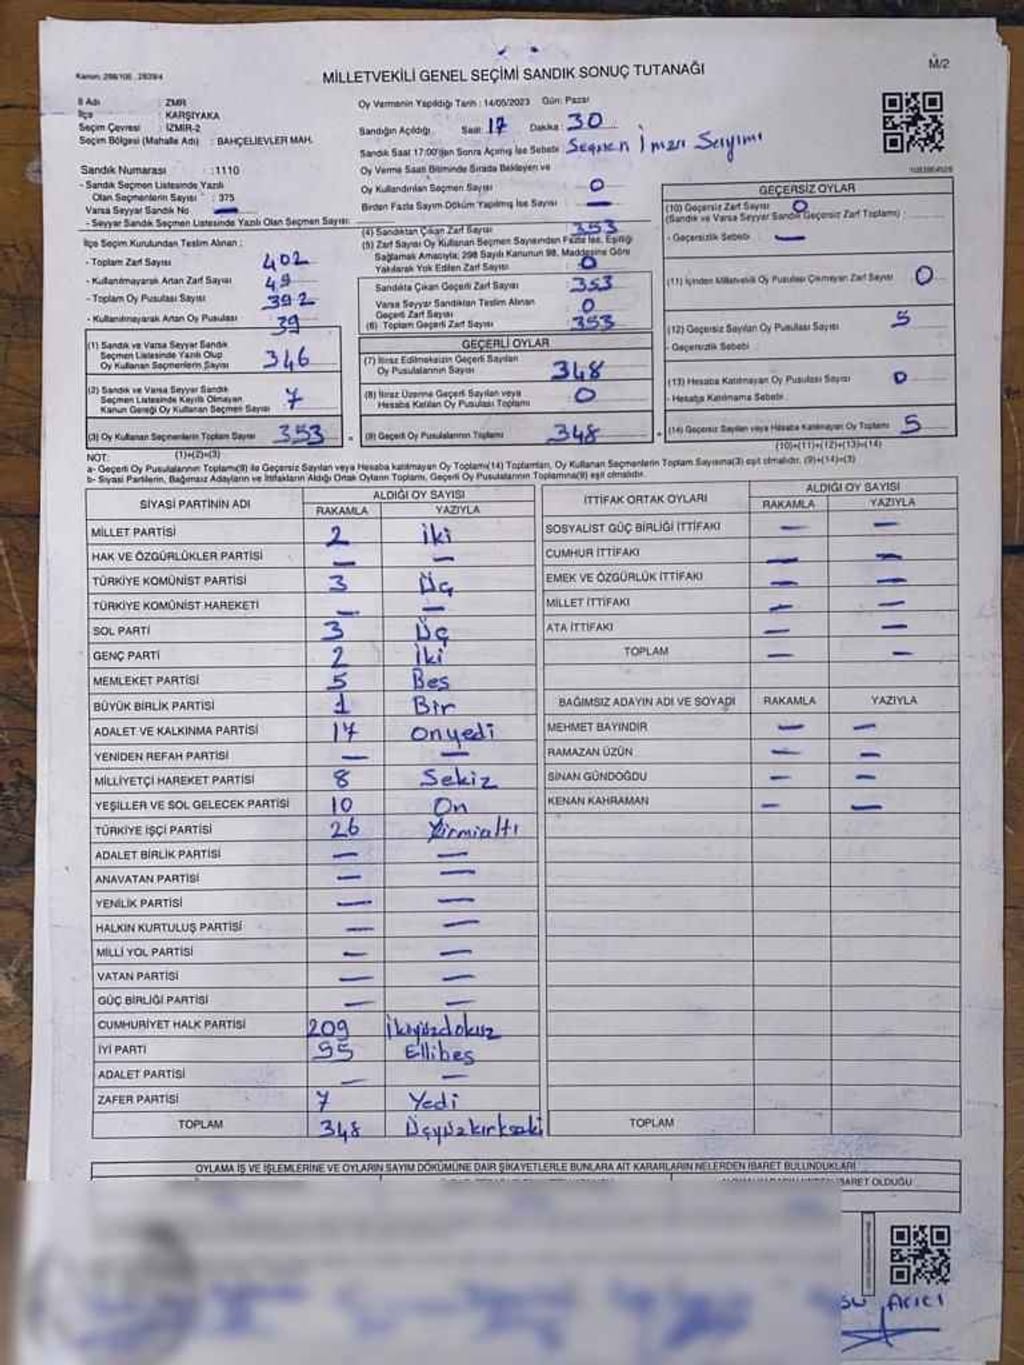 Kanun: 298/105 , 2839/4
MİLLETVEKİLİ GENEL SEÇİMİ SANDIK SONUÇ TUTANAĞI
M/2
İl Adı : ZMR
İlçe : KARŞIYAKA
Seçim Çevresi : İZMİR-2
Seçim Bölgesi (Mahalle Adı) : BAHÇELİEVLER MAH.
Oy Vermenin Yapıldığı Tarih : 14/05/2023 Gün: Pazar
Sandığın Açıldığı Saat : 17 Dakika : 30
Sandık Saat 17:00'den Sonra Açılmış İse Sebebi : Seçmen İmza Sayımı
Sandık Numarası : 1110
- Sandık Seçmen Listesinde Yazılı
Olan Seçmenlerin Sayısı : 375
Varsa Seyyar Sandık No —
- Seyyar Sandık Seçmen Listesinde Yazılı Olan Seçmen Sayısı:
Oy Verme Saati Bitiminde Sırada Bekleyen ve
Oy Kullandırılan Seçmen Sayısı 0
Birden Fazla Sayım Döküm Yapılmış İse Sayısı —
İlçe Seçim Kurulundan Teslim Alınan :
- Toplam Zarf Sayısı 402
- Kullanılmayarak Artan Zarf Sayısı 49
- Toplam Oy Pusulası Sayısı 392
- Kullanılmayarak Artan Oy Pusulası 39
(1) Sandık ve Varsa Seyyar Sandık
Seçmen Listesinde Yazılı Olup
Oy Kullanan Seçmenlerin Sayısı 346
(2) Sandık ve Varsa Seyyar Sandık
Seçmen Listesinde Kayıtlı Olmayan
Kanun Gereği Oy Kullanan Seçmen Sayısı 7
(3) Oy Kullanan Seçmenlerin Toplam Sayısı 353
(1)+(2)=(3)
(4) Sandıktan Çıkan Zarf Sayısı 353
(5) Zarf Sayısı Oy Kullanan Seçmen Sayısından Fazla İse, Eşitliği
Sağlamak Amacıyla; 298 Sayılı Kanunun 98. Maddesine Göre
Yakılarak Yok Edilen Zarf Sayısı 0
Sandıkta Çıkan Geçerli Zarf Sayısı 353
Varsa Seyyar Sandıktan Teslim Alınan
Geçerli Zarf Sayısı 0
(6) Toplam Geçerli Zarf Sayısı 353
GEÇERLİ OYLAR
(7) İtiraz Edilmeksizin Geçerli Sayılan
Oy Pusulalarının Sayısı 348
(8) İtiraz Üzerine Geçerli Sayılan veya
Hesaba Katılan Oy Pusulası Toplamı 0
(9) Geçerli Oy Pusulalarının Toplamı 348
GEÇERSİZ OYLAR
(10) Geçersiz Zarf Sayısı 0
(Sandık ve Varsa Seyyar Sandık Geçersiz Zarf Toplamı)
- Geçersizlik Sebebi : —
(11) İçinden Milletvekili Oy Pusulası Çıkmayan Zarf Sayısı 0
(12) Geçersiz Sayılan Oy Pusulası Sayısı 5
- Geçersizlik Sebebi
(13) Hesaba Katılmayan Oy Pusulası Sayısı 0
- Hesaba Katılmama Sebebi
(14) Geçersiz Sayılan veya Hesaba Katılmayan Oy Toplamı 5
(10)+(11)+(12)+(13)=(14)
NOT:
a- Geçerli Oy Pusulalarının Toplamı(9) ile Geçersiz Sayılan veya Hesaba katılmayan Oy Toplamı(14) Toplamları, Oy Kullanan Seçmenlerin Toplam Sayısına(3) eşit olmalıdır. (9)+(14)=(3)
b- Siyasi Partilerin, Bağımsız Adayların ve İttifakların Aldığı Ortak Oyların Toplamı, Geçerli Oy Pusulalarının Toplamına(9) eşit olmalıdır.
SİYASİ PARTİNİN ADI ALDIĞI OY SAYISI
RAKAMLA YAZIYLA
MİLLET PARTİSİ 2 İki
HAK VE ÖZGÜRLÜKLER PARTİSİ — —
TÜRKİYE KOMÜNİST PARTİSİ 3 Üç
TÜRKİYE KOMÜNİST HAREKETİ — —
SOL PARTİ 3 Üç
GENÇ PARTİ 2 İki
MEMLEKET PARTİSİ 5 Beş
BÜYÜK BİRLİK PARTİSİ 1 Bir
ADALET VE KALKINMA PARTİSİ 17 onyedi
YENİDEN REFAH PARTİSİ — —
MİLLİYETÇİ HAREKET PARTİSİ 8 Sekiz
YEŞİLLER VE SOL GELECEK PARTİSİ 10 On
TÜRKİYE İŞÇİ PARTİSİ 26 Yirmialtı
ADALET BİRLİK PARTİSİ — —
ANAVATAN PARTİSİ — —
YENİLİK PARTİSİ — —
HALKIN KURTULUŞ PARTİSİ — —
MİLLİ YOL PARTİSİ — —
VATAN PARTİSİ — —
GÜÇ BİRLİĞİ PARTİSİ — —
CUMHURİYET HALK PARTİSİ 209 İkiyüzdokuz
İYİ PARTİ 55 Ellibeş
ADALET PARTİSİ — —
ZAFER PARTİSİ 7 Yedi
TOPLAM 348 Üçyüzkırksekiz
İTTİFAK ORTAK OYLARI ALDIĞI OY SAYISI
RAKAMLA YAZIYLA
SOSYALİST GÜÇ BİRLİĞİ İTTİFAKI — —
CUMHUR İTTİFAKI — —
EMEK VE ÖZGÜRLÜK İTTİFAKI — —
MİLLET İTTİFAKI — —
ATA İTTİFAKI — —
TOPLAM — —
BAĞIMSIZ ADAYIN ADI VE SOYADI RAKAMLA YAZIYLA
MEHMET BAYINDIR — —
RAMAZAN ÜZÜN — —
SİNAN GÜNDOĞDU — —
KENAN KAHRAMAN — —
TOPLAM
OYLAMA İŞ VE İŞLEMLERİNE VE OYLARIN SAYIM DÖKÜMÜNE DAİR ŞİKAYETLERLE BUNLARA AİT KARARLARIN NELERDEN İBARET BULUNDUKLARI
İBARET OLDUĞU